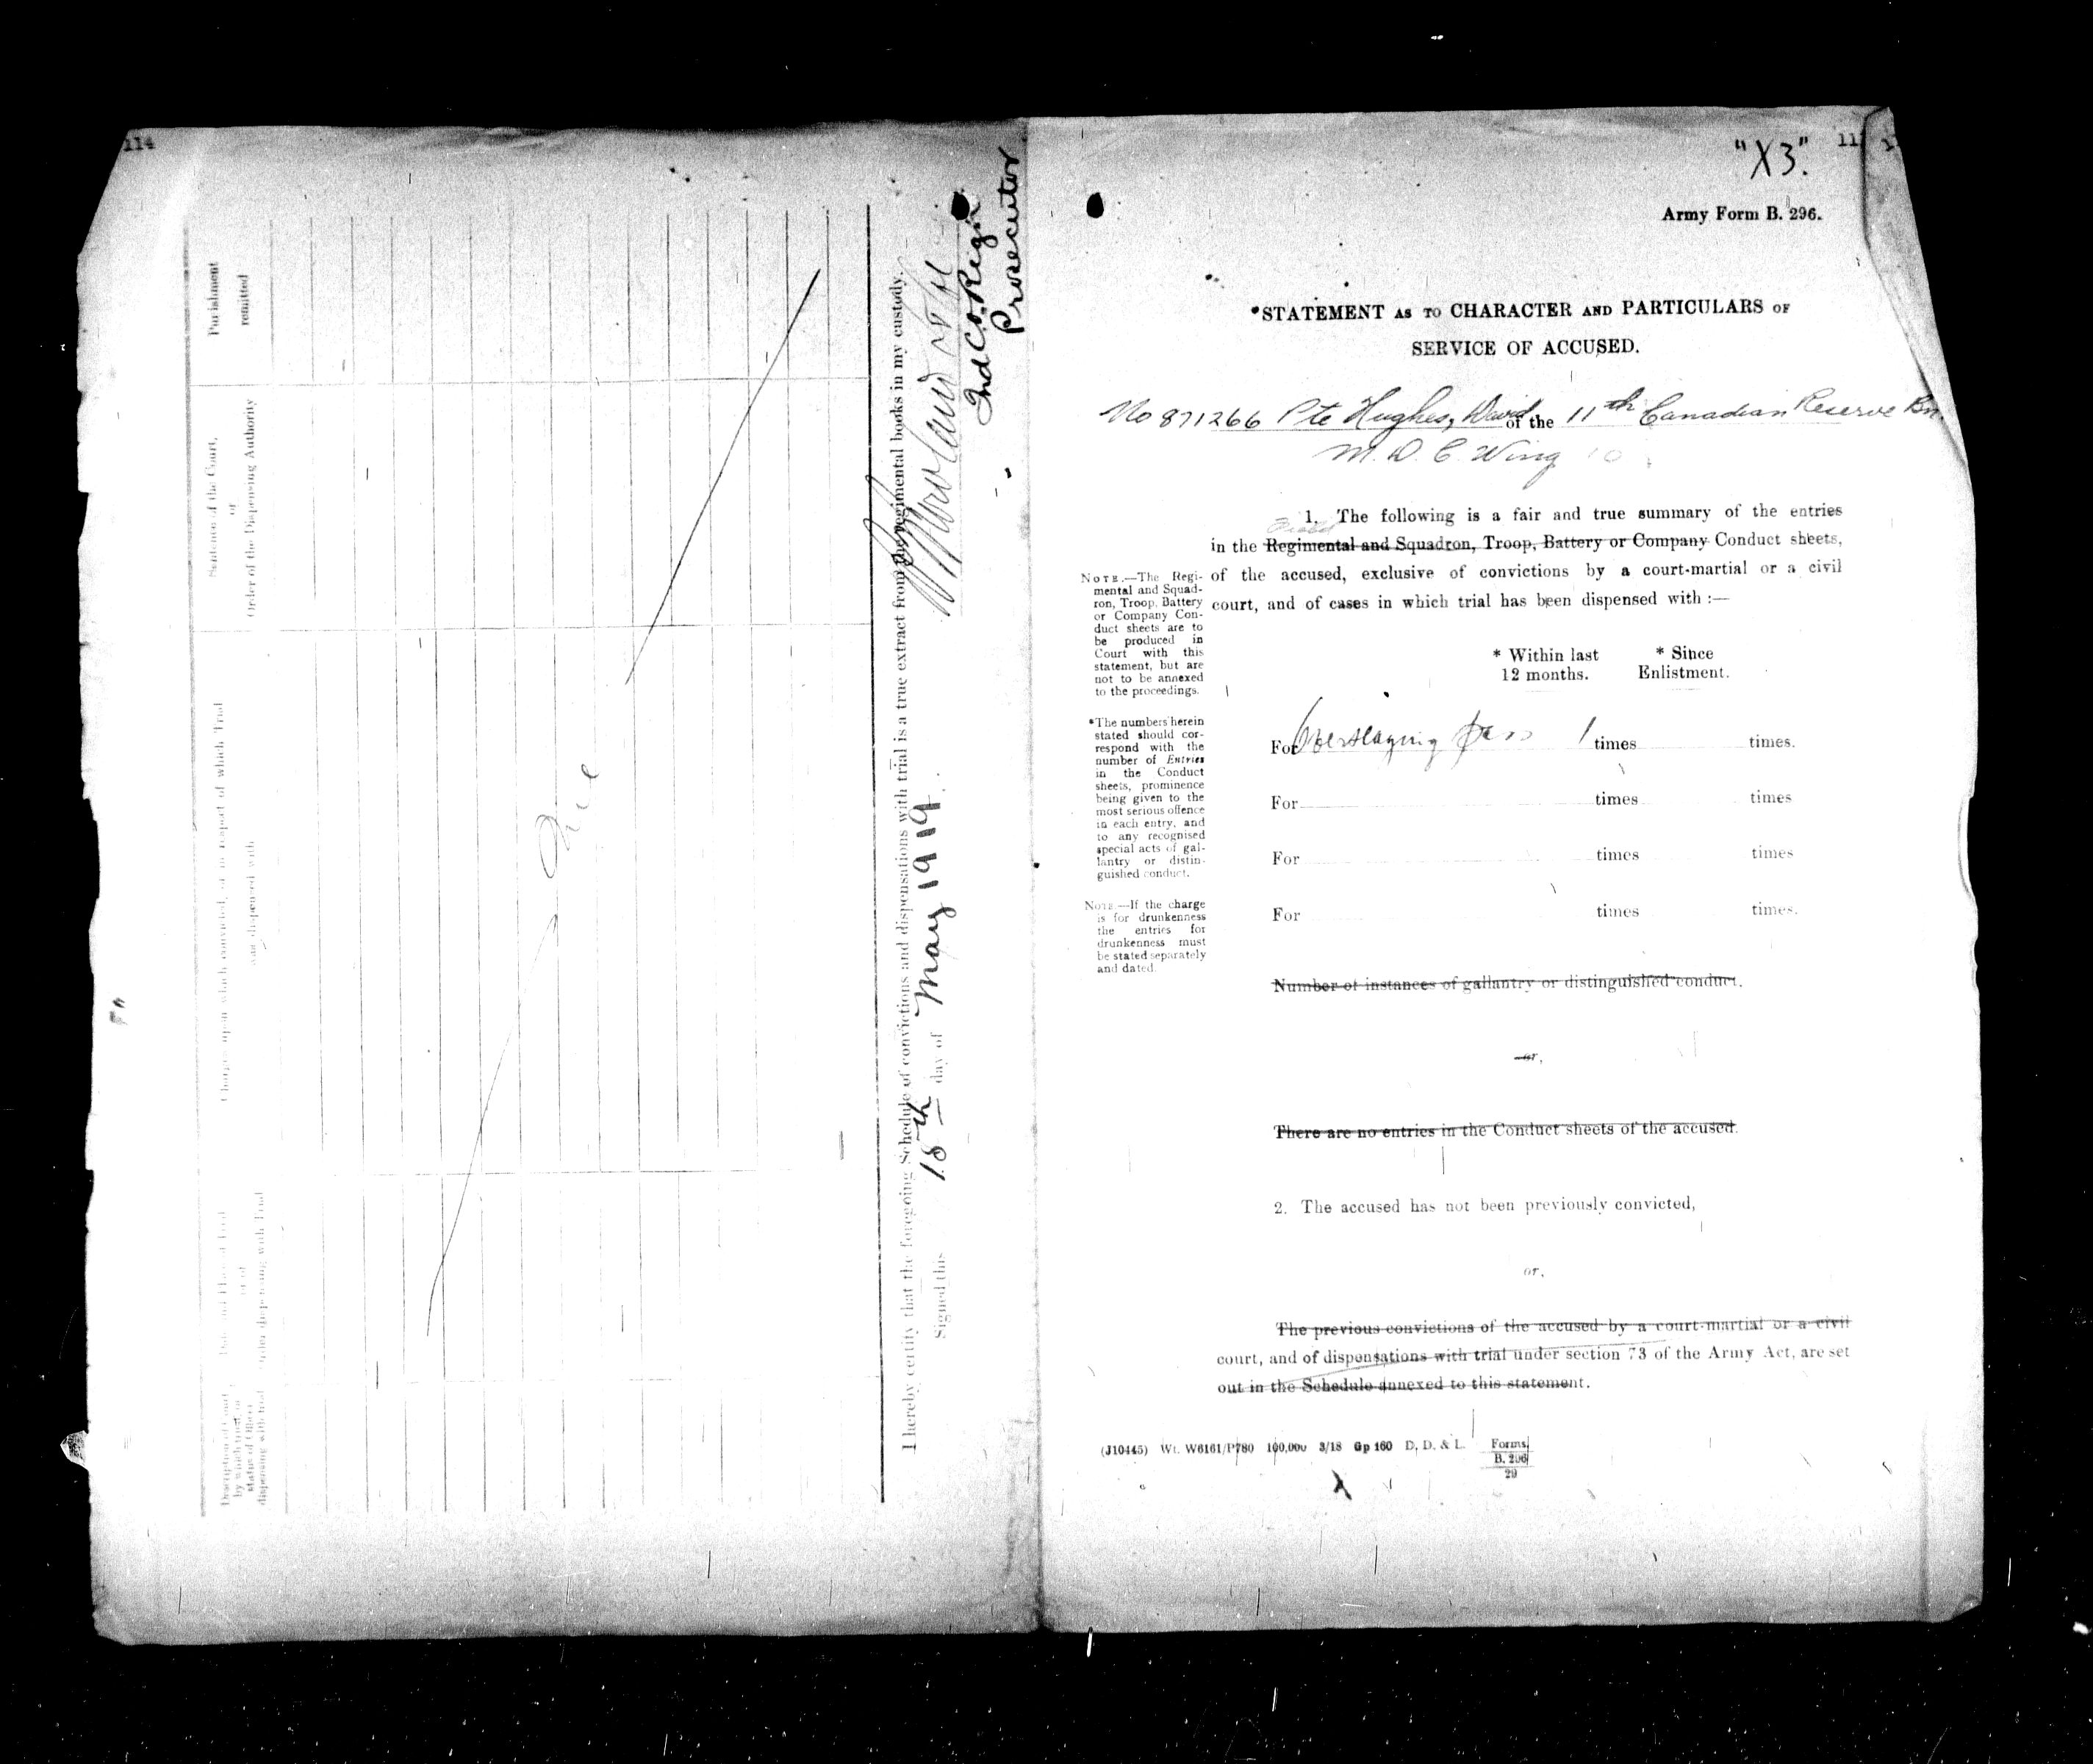 114
Punishment
remitted
Sentence of the Court,
or
Order of the Dispensing Authority
Charge upon which convicted, or in respect of which Trial
was dispensed with
I hereby certify that the foregoing Schedule of convictions and dispensations with trial is a true extract from the regimental books in my custody.
Signed this 18th day of May 1919.
Prosecutor
"X3".
11
Army Form B. 296.
*STATEMENT AS TO CHARACTER AND PARTICULARS OF
SERVICE OF ACCUSED.
No 871266 Pte Hughes, David of the 11th Canadian Reserve Bn.
M. D. C. Wing 10
1. The following is a fair and true summary of the entries
in the Regimental and Squadron, Troop, Battery or Company Conduct sheets,
of the accused, exclusive of convictions by a court-martial or a civil
court, and of cases in which trial has been dispensed with :—
NOTE.—The Regi-
mental and Squad-
ron, Troop, Battery
or Company Con-
duct sheets are to
be produced in
Court with this
statement, but are
not to be annexed
to the proceedings.
* Within last
12 months.
* Since
Enlistment.
*The numbers herein
stated should cor-
respond with the
number of Entries
in the Conduct
sheets, prominence
being given to the
most serious offence
in each entry, and
to any recognised
special acts of gal-
lantry or distin-
guished conduct.
For Overstaying pass 1 times times.
For times times
For times times
For times times.
NOTE.—If the charge
is for drunkenness
the entries for
drunkenness must
be stated separately
and dated.
Number of instances of gallantry or distinguished conduct.
or,
There are no entries in the Conduct sheets of the accused.
2. The accused has not been previously convicted,
or,
The previous convictions of the accused by a court-martial or a civil
court, and of dispensations with trial under section 73 of the Army Act, are set
out in the Schedule annexed to this statement.
(J10445) Wt. W6161/P780 100,000 3/18 Gp 160 D, D. & L. Forms
B. 296
29